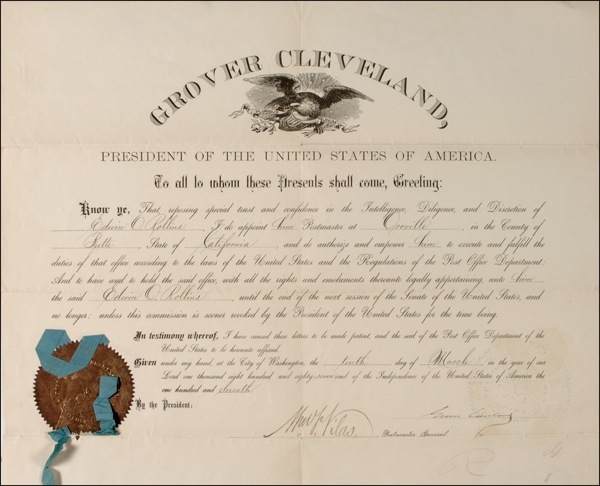 GROVER CLEVELAND,
PRESIDENT OF THE UNITED STATES OF AMERICA.
To all to whom these Presents shall come, Greeting:
Know ye, That reposing special trust and confidence in the Intelligence, Diligence, and Discretion of
Edwin O. Rollins, I do appoint him Postmaster at Oroville, in the County of
Butte, State of California, and do authorize and empower him to execute and fulfill the
duties of that office according to the laws of the United States and the Regulations of the Post Office Department:
And to have and to hold the said office, with all the rights and emoluments thereunto legally appertaining, unto him
the said Edwin O. Rollins until the end of the next session of the Senate of the United States, and
no longer: unless this commission is sooner revoked by the President of the United States for the time being.
In testimony whereof, I have caused these letters to be made patent, and the seal of the Post Office Department of the
United States to be hereunto affixed.
Given under my hand, at the City of Washington, the tenth day of March in the year of our
Lord one thousand eight hundred and eighty-seven and of the Independence of the United States of America the
one hundred and eleventh
By the President:
Grover Cleveland
Wm F. Vilas
Postmaster General